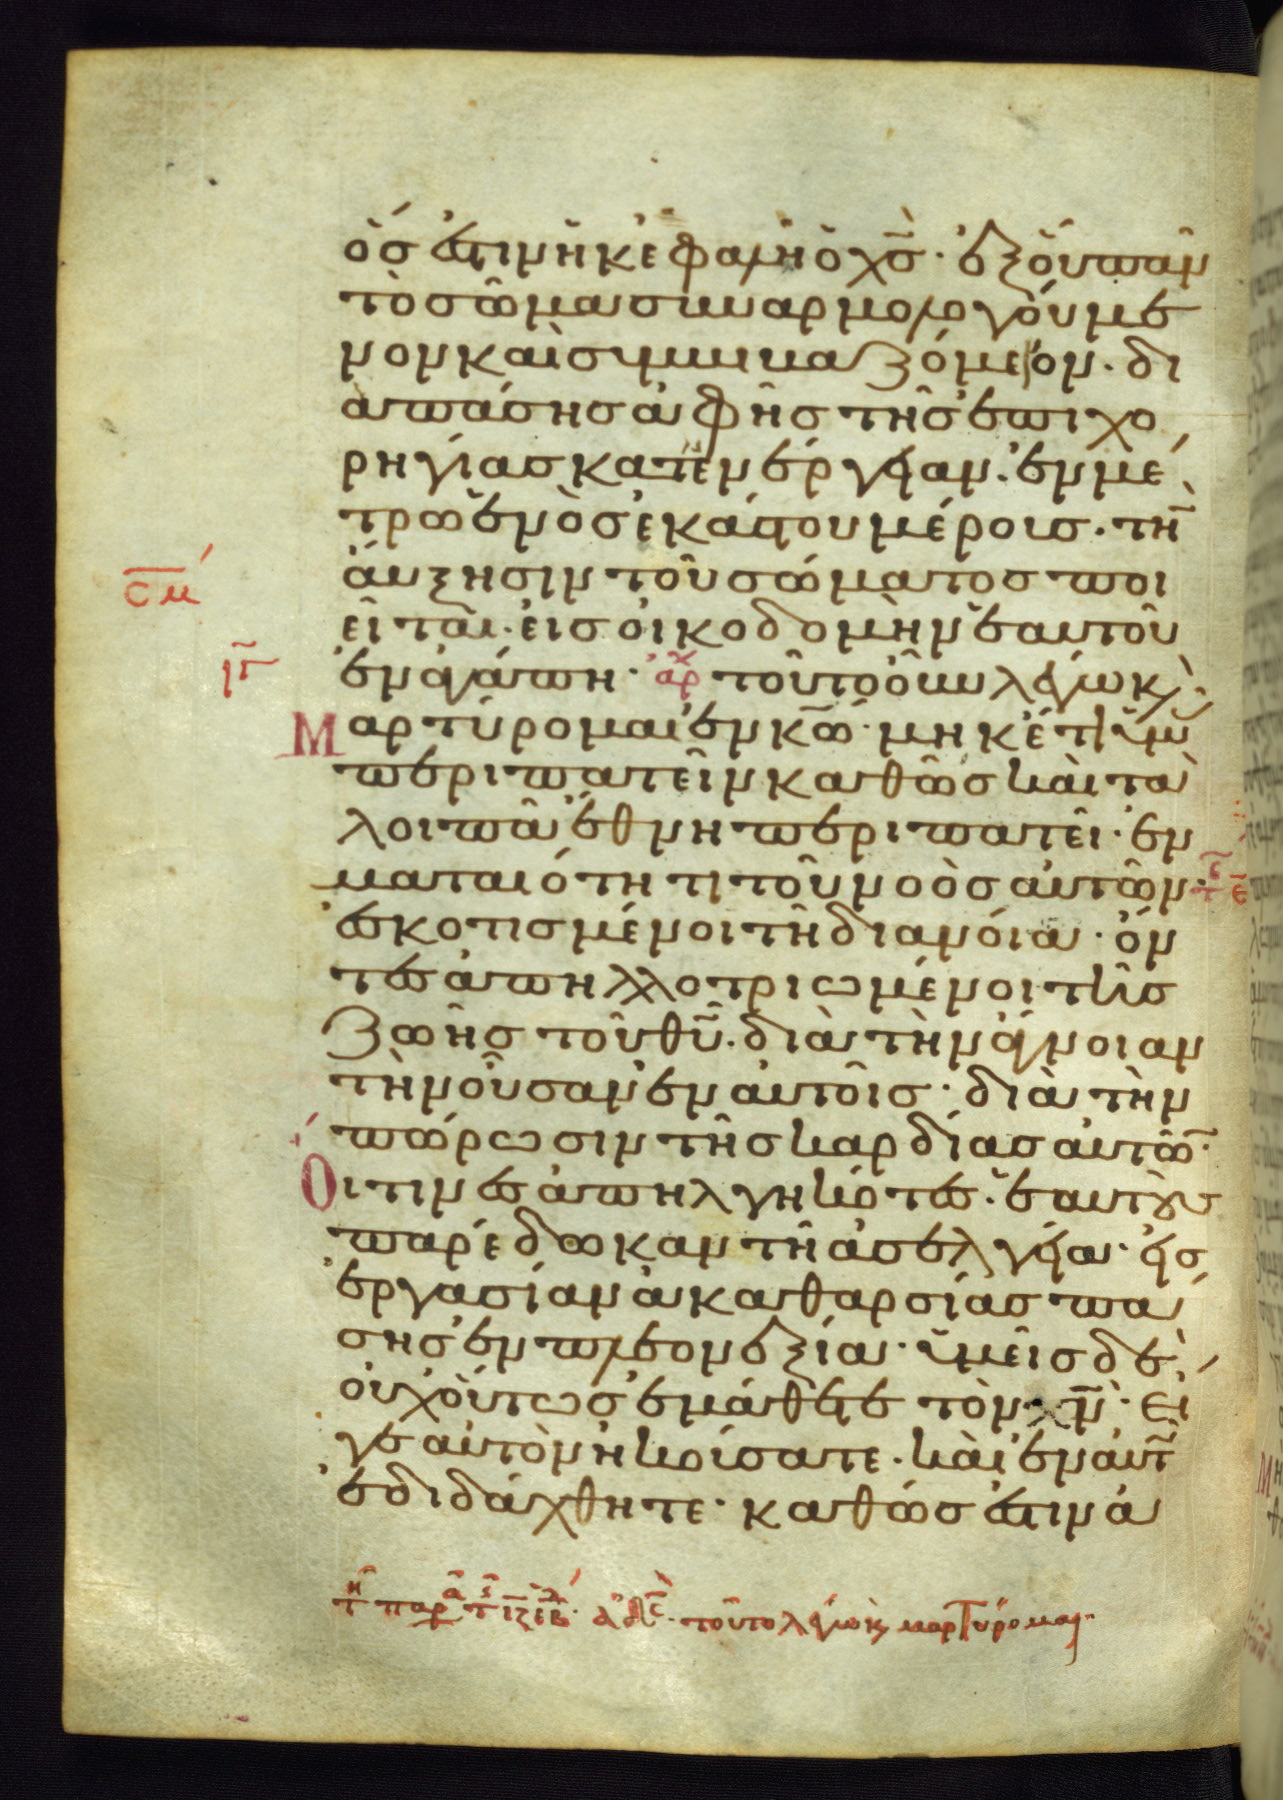 ὅς ἐστιν ἡ κεφαλὴ ὁ χς̅· ἐξ οὗ πᾶν
τὸ σῶμα συναρμολογούμε
νον καὶ συμβιβαζόμενον· δι
ὰ πάσης ἁφῆς τῆς ἐπιχο
ρηγίας κατ' ἐνέργειαν· ἐν μέ
τρω ἑνὸς ἑκάστου μέρους· τὴ̅
ἄυξησιν τοῦ σώματος ποι
εῖται· εἰς οἰκοδομὴν ἑαυτοῦ
ἐν ἀγάπη· ἀρ̅χ τοῦτο οὖν λέγω κ̀
Μαρτύρομαι ἐν κω̅· μηκέτι ὑμᾶ
περιπατεῖν καθὼς καὶ τὰ
λοιπὰ ἔθνη περιπατεῖ· ἐν
ματαιότητι τοῦ νοὸς αὐτῶν·
ἐσκοτισμένοι τῆ διανοία· ὄν
τες ἀπηλλοτριωμένοι τῆς
ζωῆς τοῦ θυ̅· διὰ τὴν ἄγνοιαν
τὴν οὖσαν ἐν αὐτοῖς· διὰ τὴν
πώρωσιν τῆς καρδίας αὐτῶ̅·
Οἵτινες ἀπηλγηκότες· ἑαυτοὺς
παρέδωκαν τῆ ἀσελγεία· εἰς
ἐργασίαν ἀκαθαρσίας πά
σης ἐν πλεονεξία· ὑμεῖς δὲ
οὐχ οὕτως ἐμάθετε τὸν χν̅· εἴ
γε αὐτὸν ἠκούσατε· καὶ ἐν αὐτ̅
ἐδιδάχθητε· καθώς ἐστιν ἀ
σμ̅
τοῦτο λέγω κ̀ μαρτύρομαι